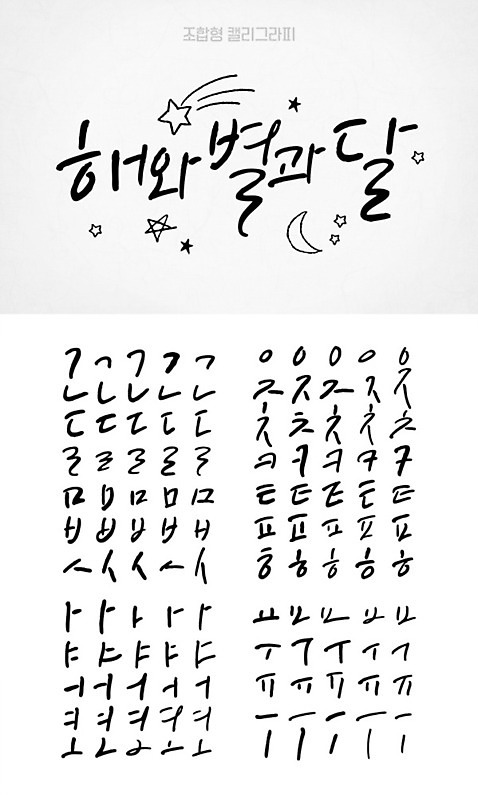 조합형 캘리그라피
해와 별과 달
ㄱ ㄱ ㄱ ㄱ ㄱ
ㄴ ㄴ ㄴ ㄴ ㄴ
ㄷ ㄷ ㄷ ㄷ ㄷ
ㄹ ㄹ ㄹ ㄹ ㄹ
ㅁ ㅁ ㅁ ㅁ ㅁ
ㅂ ㅂ ㅂ ㅂ ㅂ
ㅅ ㅅ ㅅ ㅅ ㅅ
ㅇ ㅇ ㅇ ㅇ ㅇ
ㅈ ㅈ ㅈ ㅈ ㅈ
ㅊ ㅊ ㅊ ㅊ ㅊ
ㅋ ㅋ ㅋ ㅋ ㅋ
ㅌ ㅌ ㅌ ㅌ ㅌ
ㅍ ㅍ ㅍ ㅍ ㅍ
ㅎ ㅎ ㅎ ㅎ ㅎ
ㅏ ㅏ ㅏ ㅏ ㅏ
ㅑ ㅑ ㅑ ㅑ ㅑ
ㅓ ㅓ ㅓ ㅓ ㅓ
ㅕ ㅕ ㅕ ㅕ ㅕ
ㅗ ㅗ ㅗ ㅗ ㅗ
ㅛ ㅛ ㅛ ㅛ ㅛ
ㅜ ㅜ ㅜ ㅜ ㅜ
ㅠ ㅠ ㅠ ㅠ ㅠ
ㅡ ㅡ ㅡ ㅡ ㅡ
ㅣ ㅣ ㅣ ㅣ ㅣ